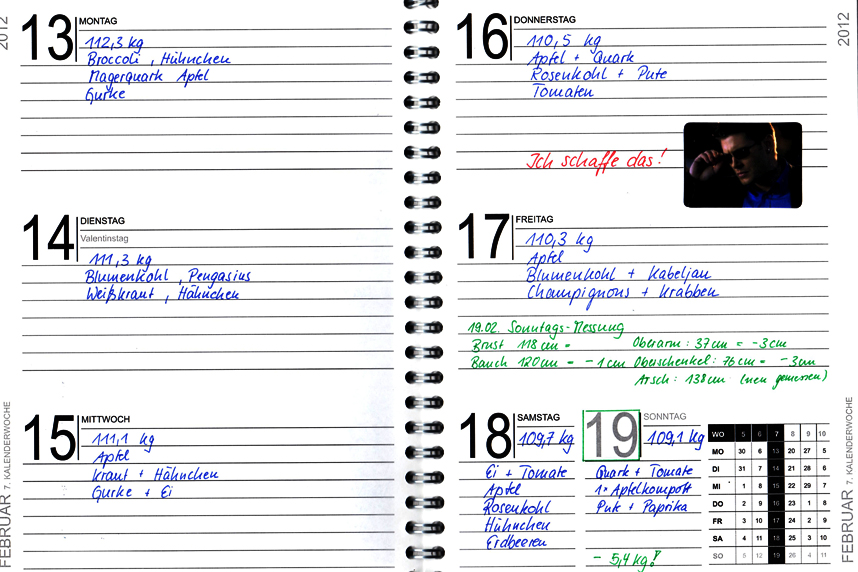 2012
13 MONTAG
112,3 kg
Broccoli, Hühnchen
Magerquark Apfel
Gurke
14 DIENSTAG
Valentinstag
111,3 kg
Blumenkohl, Pengasius
Weißkraut, Hähnchen
15 MITTWOCH
111,1 kg
Apfel
Kraut + Hähnchen
Gurke + Ei
FEBRUAR 7. KALENDERWOCHE
16 DONNERSTAG
2012
110,5 kg
Apfel + Quark
Rosenkohl + Pute
Tomaten
Ich schaffe das!
17 FREITAG
110,3 kg
Apfel
Blumenkohl + Kabeljau
Champignons + Krabben
19.02. Sonntags-Messung
Brust 118 cm = Oberarm: 37 cm = -3 cm
Bauch 120 cm = -1 cm Oberschenkel: 76 cm = -3 cm
Arsch: 138 cm (neu gemessen)
18 SAMSTAG
109,7 kg
Ei + Tomate
Apfel
Rosenkohl
Hühnchen
Erdbeeren
19 SONNTAG
109,1 kg
Quark + Tomate
1x Apfelkompott
Pute + Paprika
- 5,4 kg!
WO 5 6 7 8 9 10
MO 30 6 13 20 27 5
DI 31 7 14 21 28 6
MI 1 8 15 22 29 7
DO 2 9 16 23 1 8
FR 3 10 17 24 2 9
SA 4 11 18 25 3 10
SO 5 12 19 26 4 11
FEBRUAR 7. KALENDERWOCHE